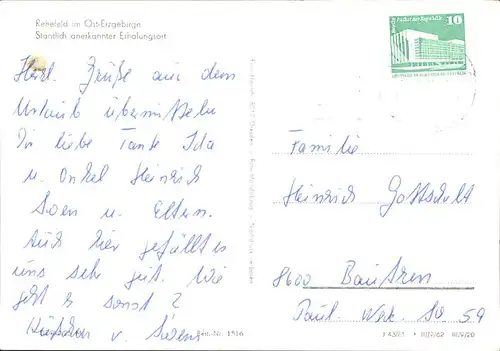 Rehefeld im Ost-Erzgebirge
Staatlich anerkannter Erholungsort
Herzl. Grüße aus dem
Urlaub übermitteln
Dir liebe Tante Ida
u. Onkel Heinrich
Sven u. Eltern.
Auch hier gefällt es
uns sehr gut. Wie
geht es sonst?
v. Sven
Palast der Republik
10
Familie
Heinrich Gottschalk
8600 Bautzen
Paul. Werk. Str. 59